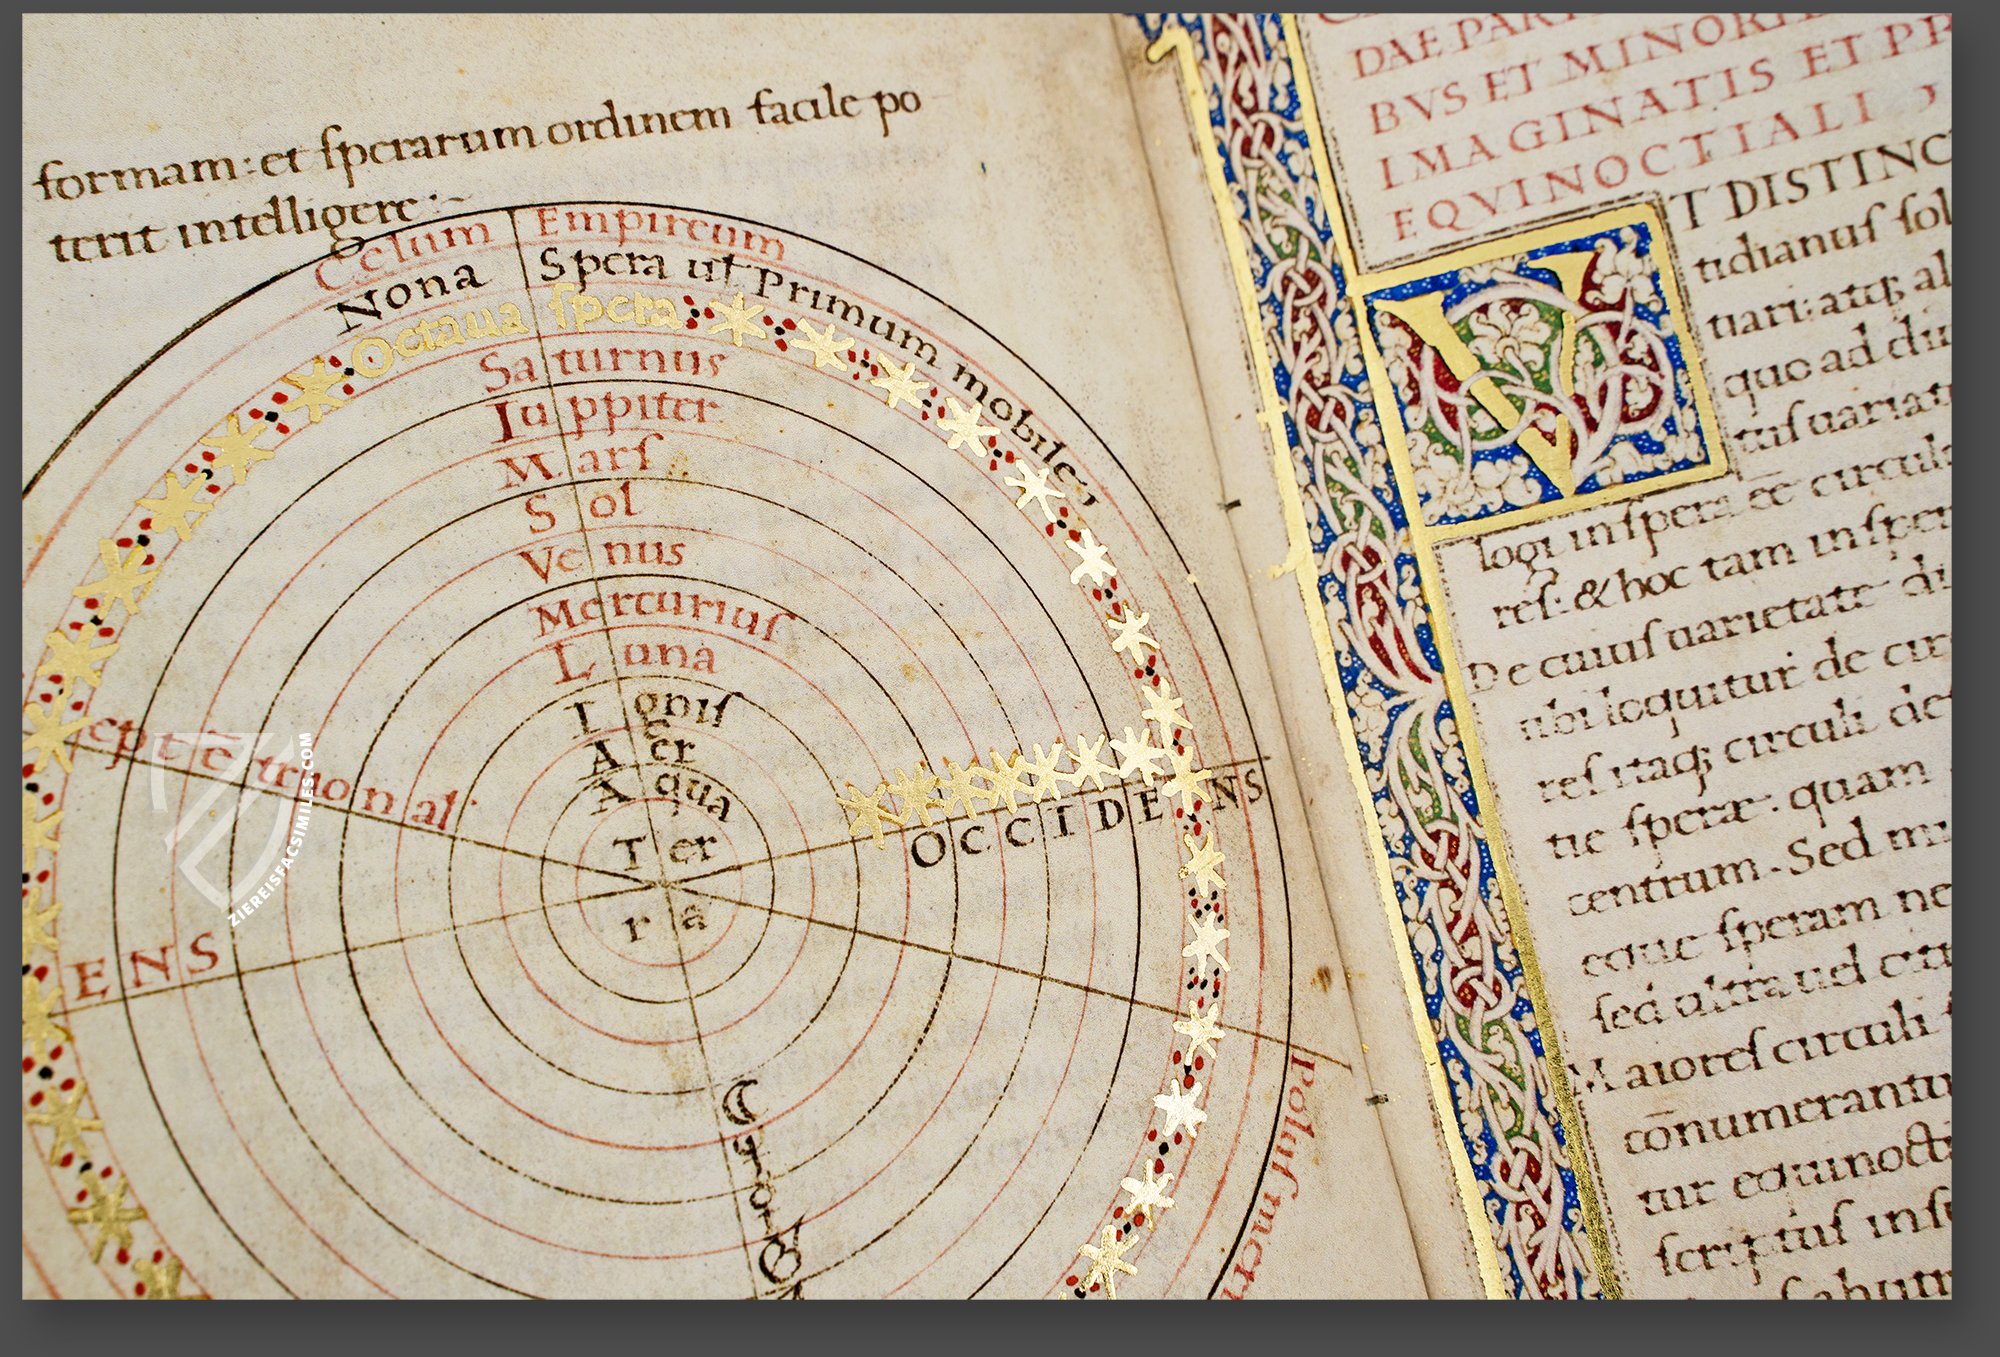 formam: et sperarum ordinem facile po
terit intelligere:~
Celum Empireum
Nona Spera ut Primum mobile
Octaua spera
Saturnus
Iuppiter
Mars
Sol
Venus
Mercurius
Luna
Ignis
Aer
Aqua
Terra
OCCIDENS
ENS
Polus
ZIEREISFACSIMILES.COM
DAE PAR
BVS ET MINORI
IMAGINATIS ET PR
EQVINOCTIALI
VT DISTINC
tidianus sol
tiari: atq; al
quo ad
tus uariat
logi in spera eē circul
res: & hoc tam in sper
De cuius uarietate di
ubi loquitur de cir
res itaq; circuli de
tie speræ: quam
centrum. Sed mi
eque speram ne
sed ultra uel citr
Maiores circuli
cōnumerantu
tur equinocti
scriptus in su